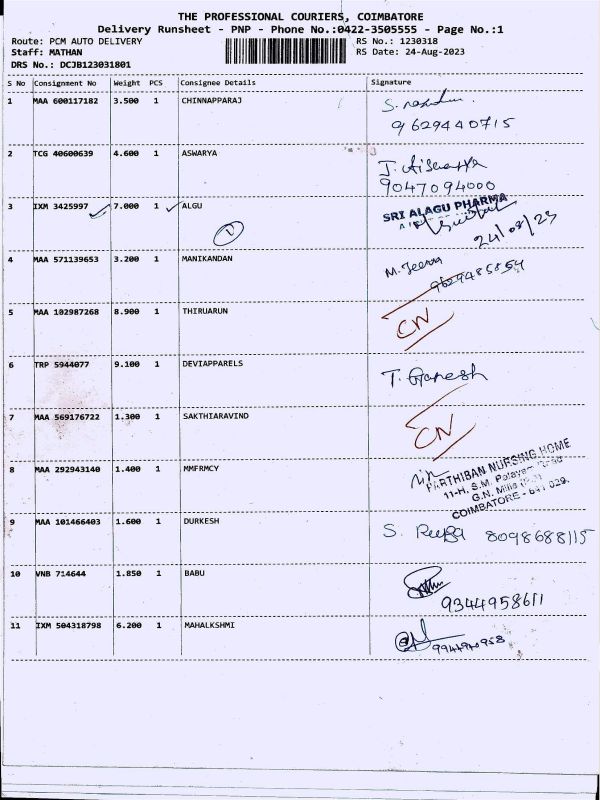 THE PROFESSIONAL COURIERS, COIMBATORE
Delivery Runsheet - PNP - Phone No.:0422-3505555 - Page No.:1
Route: PCM AUTO DELIVERY RS No.: 1230318
Staff: MATHAN RS Date: 24-Aug-2023
DRS No.: DCJB123031801
S No Consignment No Weight PCS Consignee Details Signature
1 MAA 600117182 3.500 1 CHINNAPPARAJ S.
9629440715
2 TCG 40600639 4.600 1 ASWARYA
9047094000
3 IXM 3425997 7.000 1 ALGU SRI ALAGU PHARMA
24/08/23
4 MAA 571139653 3.200 1 MANIKANDAN M. Jeeva
9629485854
5 MAA 102987268 8.900 1 THIRUARUN CN
6 TRP 5944077 9.100 1 DEVIAPPARELS T. Ganesh
7 MAA 569176722 1.300 1 SAKTHIARAVIND CN
8 MAA 292943140 1.400 1 MMFRMCY PARTHIBAN NURSING HOME
11-H, S.M. Palayam
G.N. Mills
COIMBATORE - 641 029.
9 MAA 101466403 1.600 1 DURKESH S. 8098688115
10 VNB 714644 1.850 1 BABU
9344958611
11 IXM 504318798 6.200 1 MAHALKSHMI